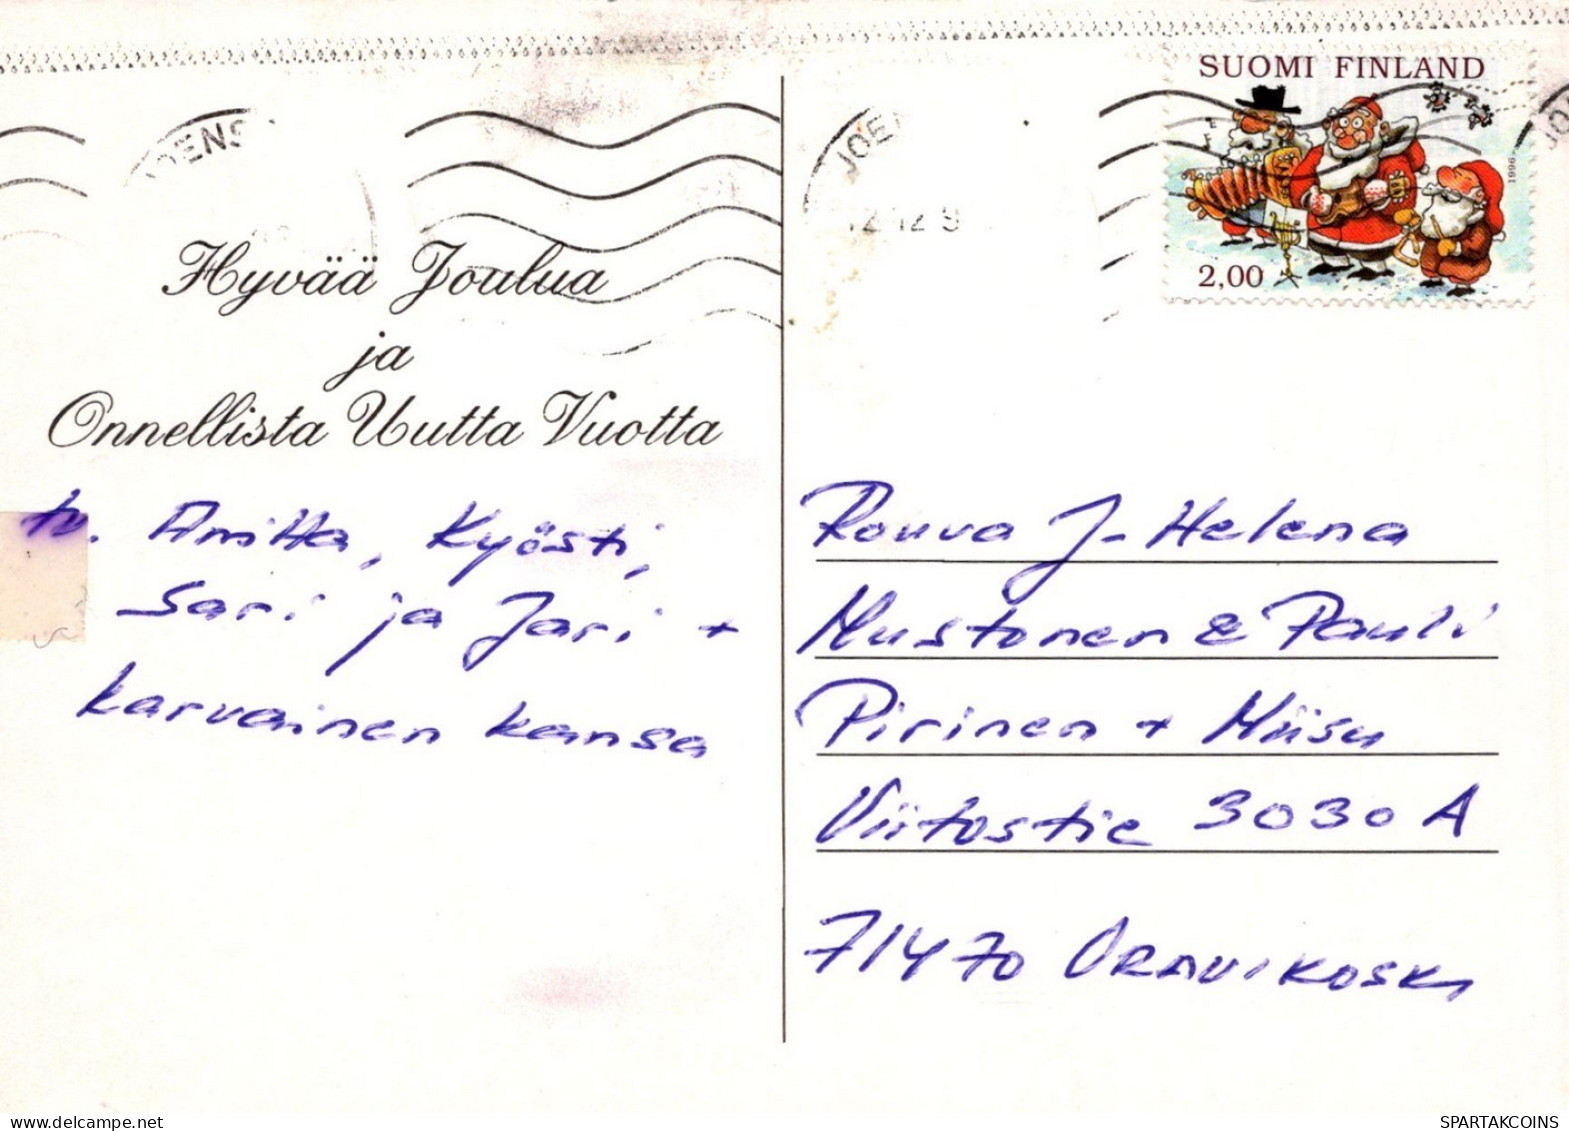 SUOMI FINLAND
1996
2,00
JOENS
JOE
12 12 9
JO
Hyvää Joulua
ja
Onnellista Uutta Vuotta
tv. Anitta, Kyösti,
Sari ja Jari +
karvainen kansa
Rouva J-Helena
Mustonen & Pauli
Pirinen + Miisu
Viitostie 3030 A
71470 ORAVIKOSKI
SPARTAKCOINS